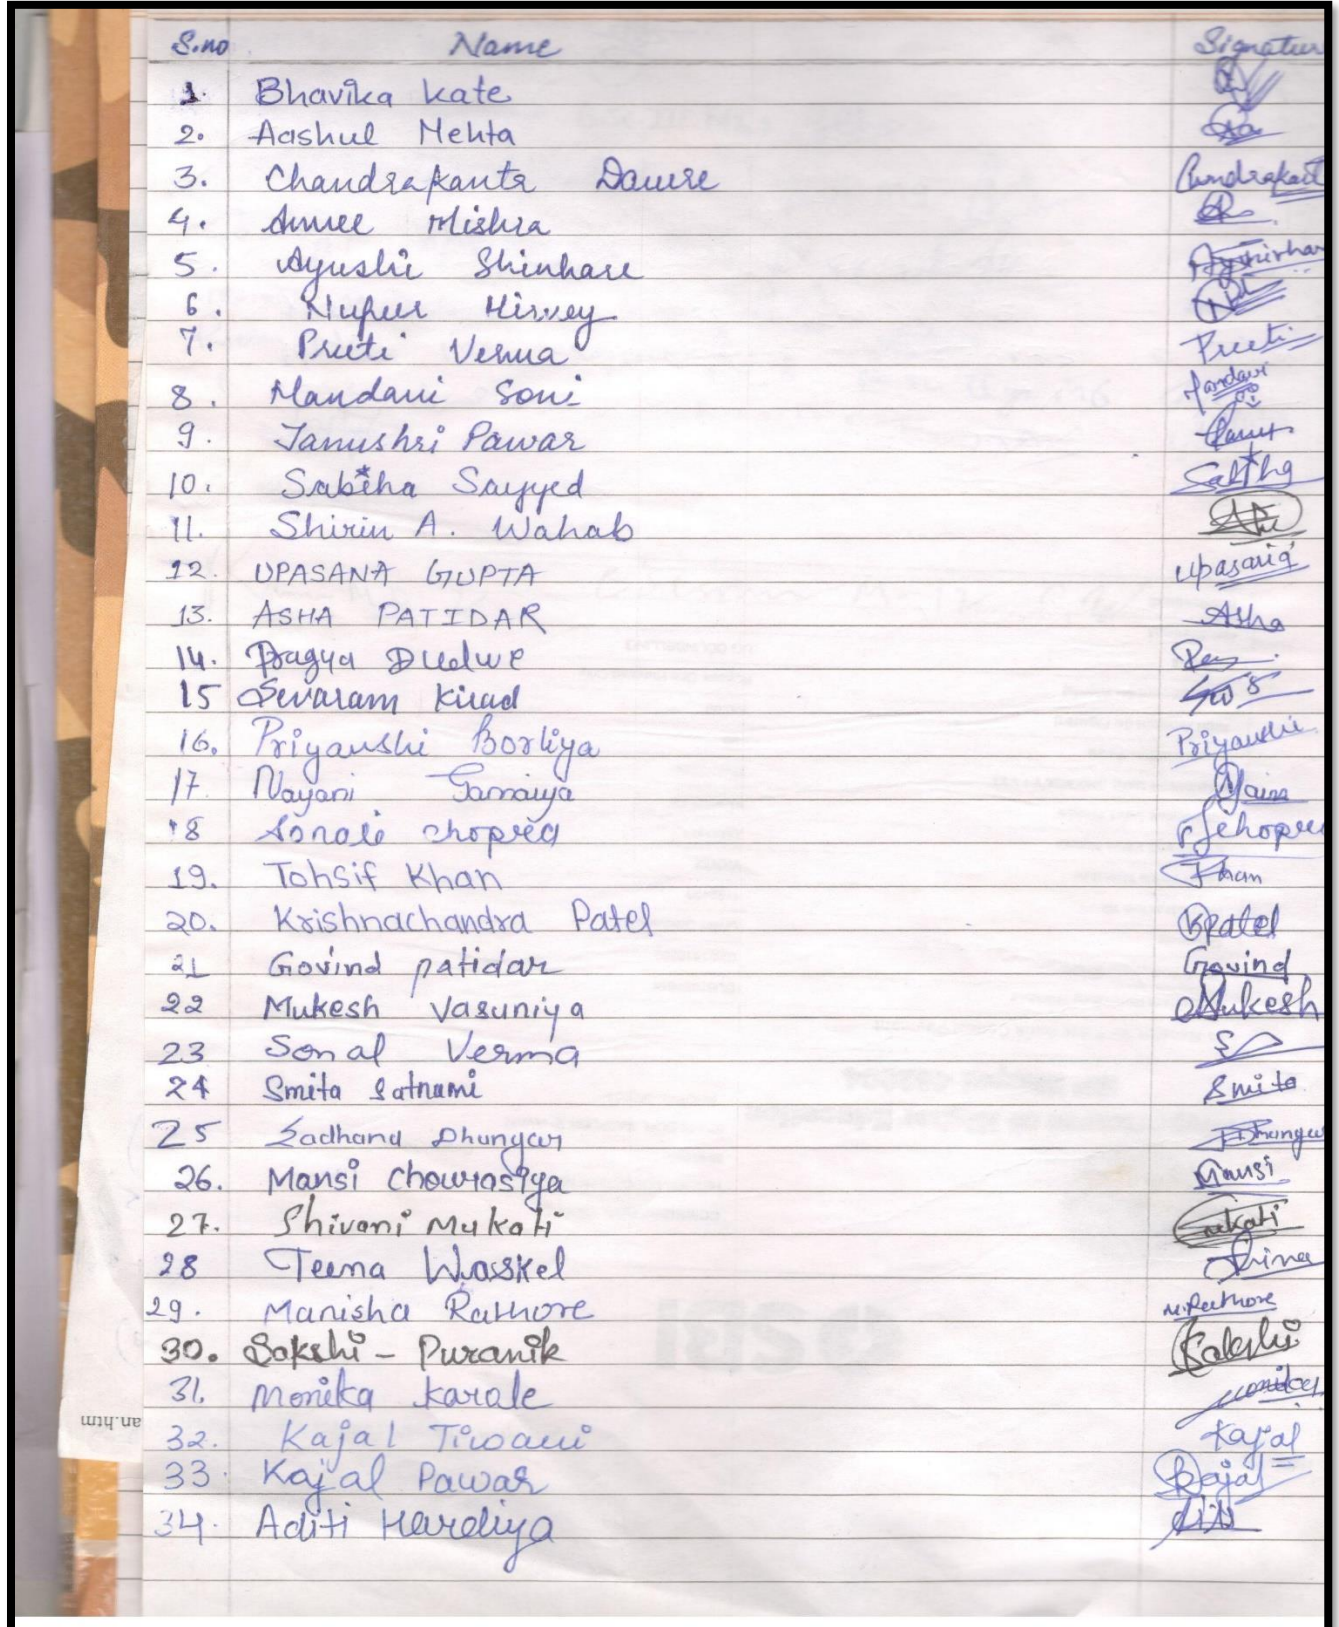 S.no Name Signature
1. Bhavika Kate
2. Aashul Mehta
3. Chandrakanta Dawre Chandrakant
4. Annee Mishra
5. Ayushi Shinhare
6. Nupur Hirvey
7. Preeti Verma Preeti
8. Mandavi Soni Mandavi
9. Tanushri Pawar
10. Sabiha Sayyed Sabiha
11. Shirin A. Wahab
12. UPASANA GUPTA Upasana
13. ASHA PATIDAR Asha
14. Pragya Dudwe
15 Sevaram Kirad
16. Priyanshi Borliya Priyanshi
17. Nayani
18 Sonali chopra Schopra
19. Tohsif Khan Khan
20. Krishnachandra Patel KPatel
21 Govind patidar Govind
22 Mukesh Vasuniya Mukesh
23 Sonal Verma
24 Smita Satnami Smita
25 Sadhana Dhangar Dhangar
26. Mansi Chowrasiya Mansi
27. Shivani Mukati Mukati
28 Teema Wasskel
29. Manisha Rathore M.Rathore
30. Sakshi - Puranik Sakshi
31. Monika Karale Monika
32. Kajal Tiwari Kajal
33. Kajal Pawar Kajal
34. Aditi Hardiya
an.htm